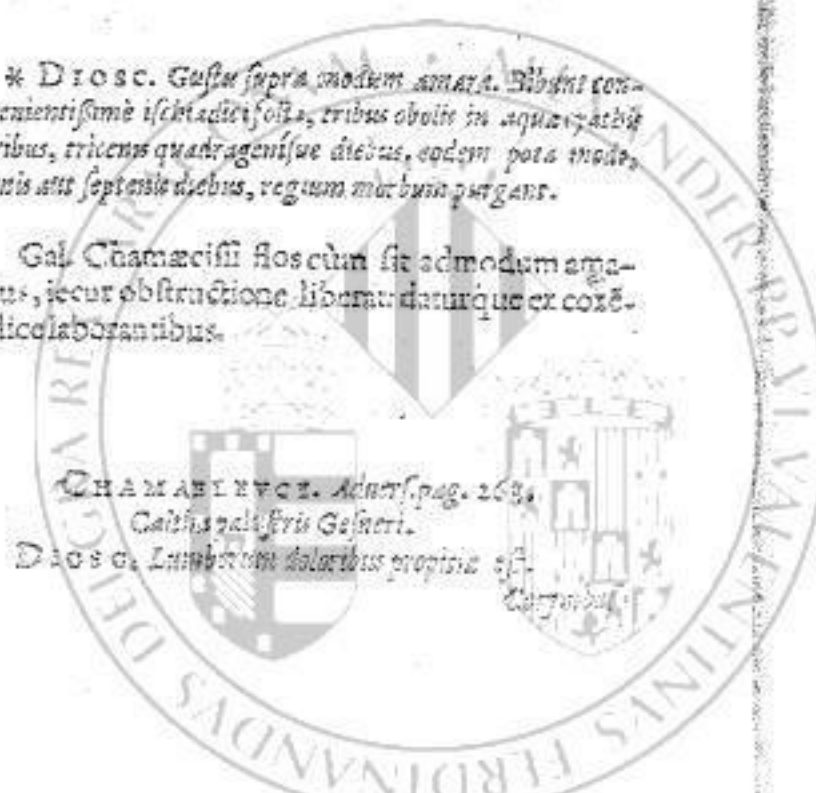 * DIOSC. Gustu supra modum amara. Bibunt con-
enientissimè ischiadici folia, tribus obolis in aquæ cyathis
ribus, tricenis quadragenisue diebus, eodem pota modo,
nis aut septenis diebus, regium morbum purgant.
Gal. Chamæcissi flos cùm sit admodum ama-
us, iecur obstructione liberat: daturque ex coxē-
dice laborantibus.
CHAMAELEVCE. Aduers. pag.
Caltha palustris Gesneri.
DIOSC. Lumborum doloribus propitia est.